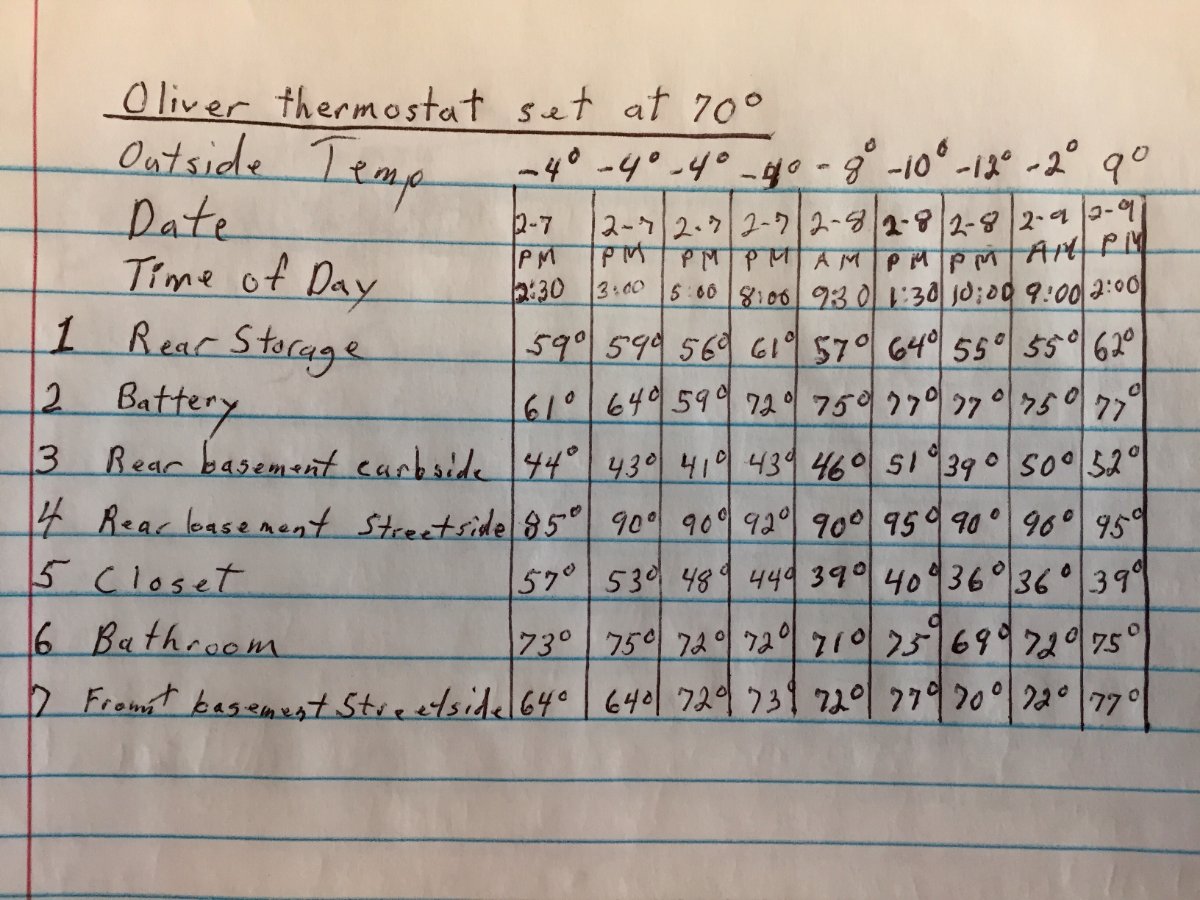 Oliver thermostat set at 70°
Outside Temp -4° -4° -4° -4° -8° -10° -12° -2° 9°
Date 2-7 2-7 2-7 2-7 2-8 2-8 2-8 2-9 2-9
PM PM PM PM AM PM PM AM PM
Time of Day 2:30 3:00 5:00 8:00 930 1:30 10:00 9:00 2:00
1 Rear Storage 59° 59° 56° 61° 57° 64° 55° 55° 62°
2 Battery 61° 64° 59° 72° 75° 77° 77° 75° 77°
3 Rear basement curbside 44° 43° 41° 43° 46° 51° 39° 50° 52°
4 Rear basement Streetside 85° 90° 90° 92° 90° 95° 90° 90° 95°
5 Closet 57° 53° 48° 44° 39° 40° 36° 36° 39°
6 Bathroom 73° 75° 72° 72° 71° 75° 69° 72° 75°
7 Front basement Streetside 64° 64° 72° 73° 72° 77° 70° 72° 77°